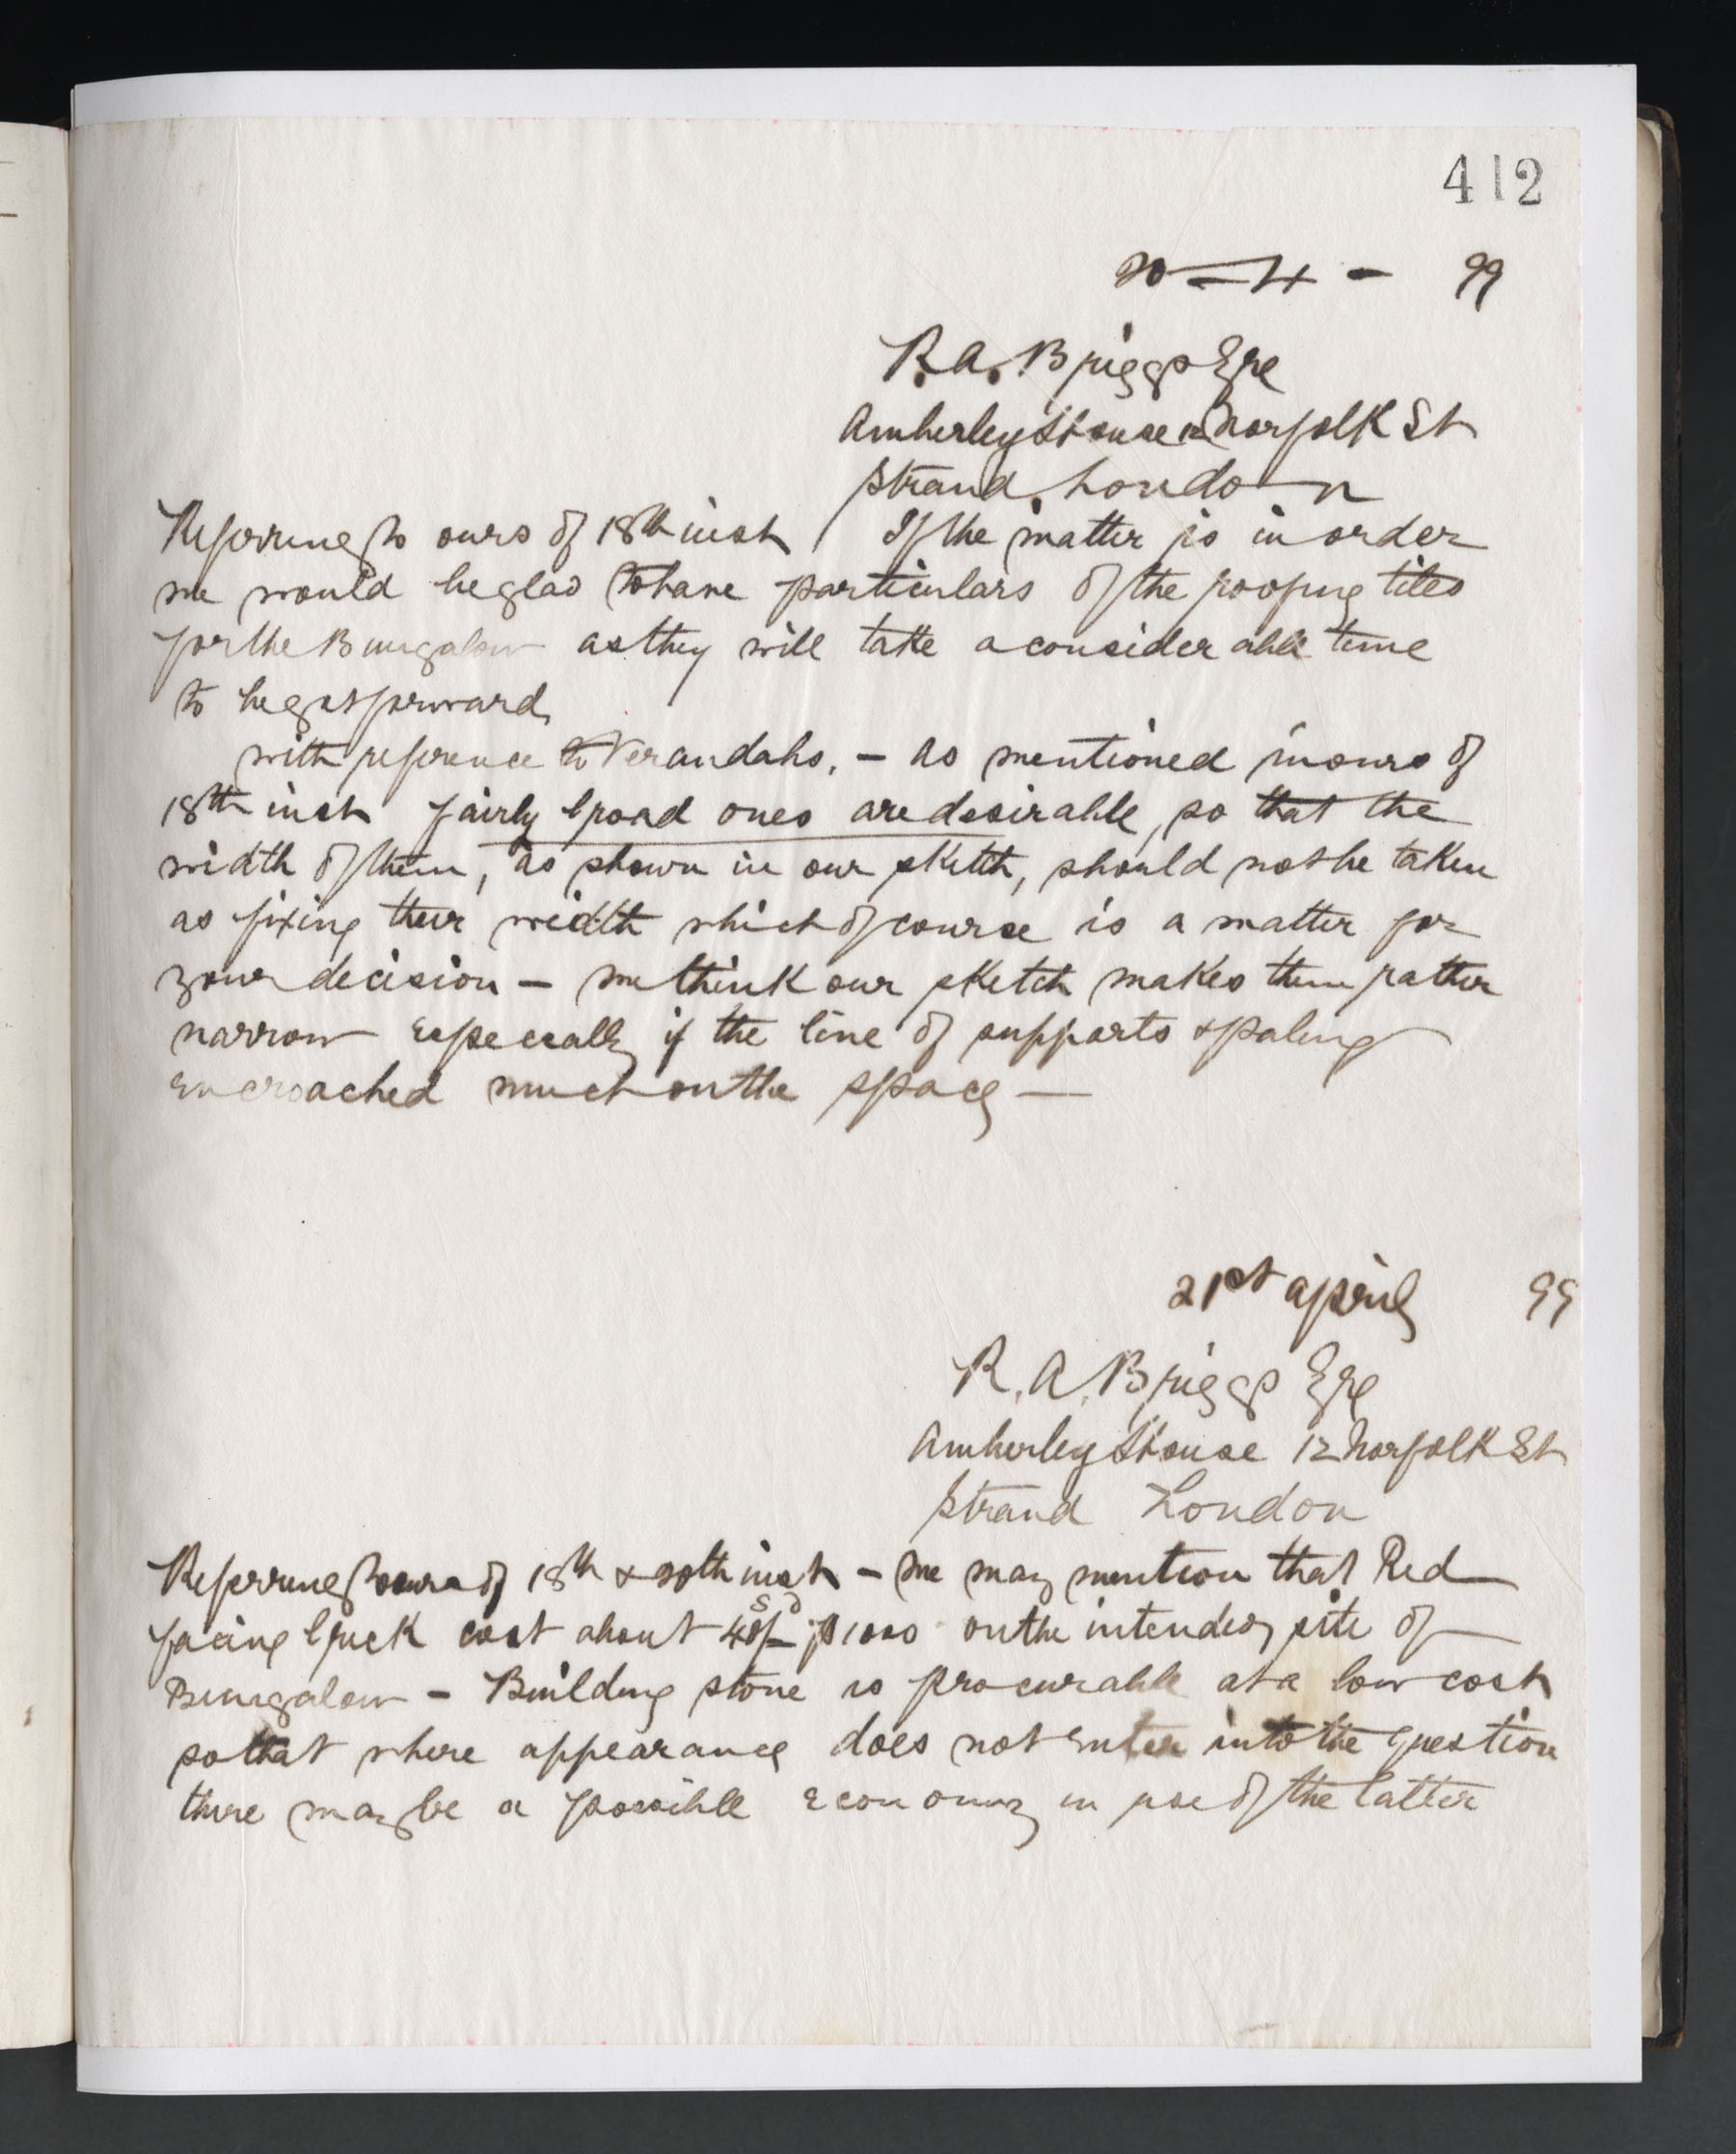 412
20-4- 99
R.A. Briggs Esqe
Amberley House 12 Norfolk St
Strand. London
Referring to ours of 18th inst If the matter is in order
we would be glad to have particulars of the roofing tiles
for the Bungalow as they will take a considerable time
to be got forward
with reference to Verandahs. - as mentioned in ours of
18th inst fairly broad ones are desirable, so that the
width of them, as shown in our sketch, should not be taken
as fixing their width which of course is a matter for
your decision - we think our sketch makes them rather
narrow especially if the line of supports & paling
encroached much on the space -
21st April 99
R. A. Briggs Esqe
Amberley House 12 Norfolk St
Strand London
Referring to ours of 18th & 20th inst - we may mention that Red
facing brick cost about p 1000 on the intended site of
Bungalow - Building stone is procurable at a low cost
so that where appearance does not enter into the question
there may be a possible economy in use of the latter